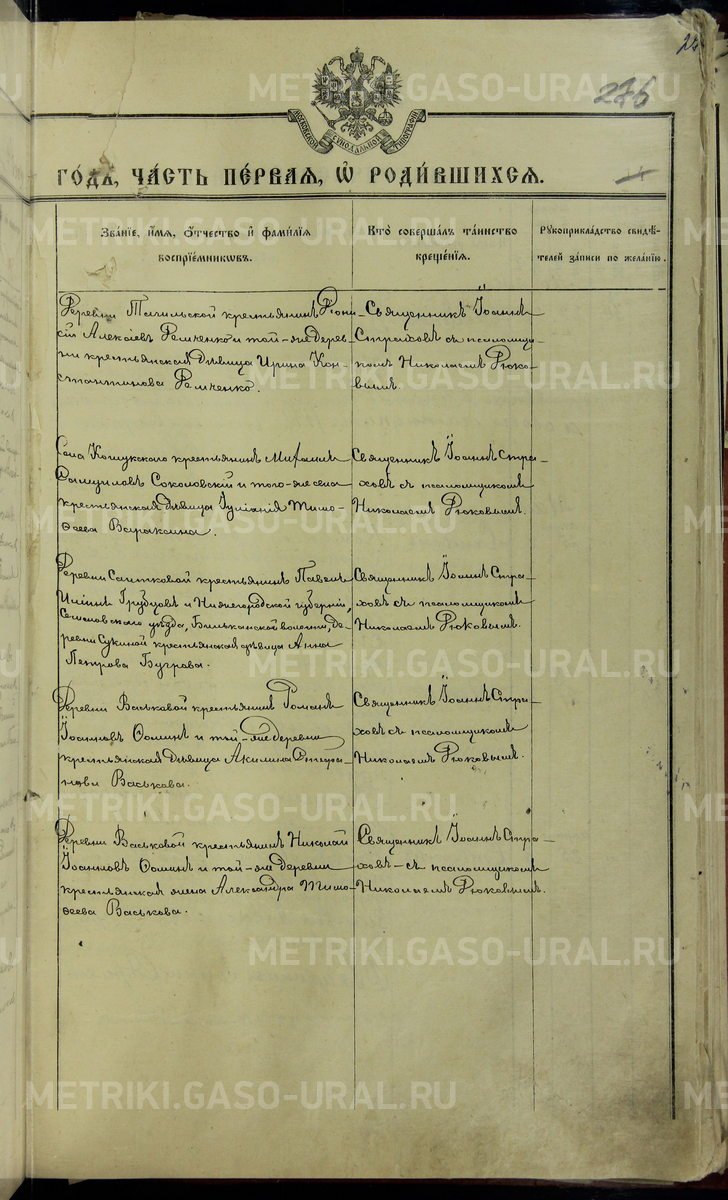 275
МОСКОВСКОЙ СѴНОДАЛЬНОЙ ТИПОГРАФІИ
ГО́ДѢ, ЧА́СТЬ ПЕ́РВАЯ, Ѡ҆ РОДИ́ВШИХСЯ.
Зва́нїе, и҆́мѧ, ѻ҆́тчество и҆ фами́лїѧ
воспрїе́мникѡвъ.
Кто̀ соверша́лъ та́инство
креще́нїѧ.
Рꙋкоприкла́дство свидѣ́-
телей за́писи по жела́нїю.
Деревни Тагильской крестьянинъ
Алексѣевъ Демченко и той-же дерев-
ни крестьянская дѣвица Ирина Кон-
стантинова Демченко.
Священникъ Іоаннъ
Страховъ съ псаломщи-
комъ Николаемъ Рюко-
вымъ.
Села Кошукскаго крестьянинъ Михаилъ
Соколовскій и того-же села
крестьянская дѣвица Іуліанія Тимо-
ѳеева Вараксина.
Священникъ Іоаннъ Стра-
ховъ съ псаломщикомъ
Николаемъ Рюковымъ.
Деревни Саитковой крестьянинъ Павелъ
Ильинъ и Нижегородской губерніи,
Семеновскаго уѣзда, волости, де-
ревни Сукиной крестьянская дѣвица Анна
Петрова Бугрова.
Священникъ Іоаннъ Стра-
ховъ съ псаломщикомъ
Николаемъ Рюковымъ.
Деревни Васьковой крестьянинъ Романъ
Іоанновъ Ѳоминъ и той-же деревни
крестьянская дѣвица Акилина
Васькова.
Священникъ Іоаннъ Стра-
ховъ съ псаломщикомъ
Николаемъ Рюковымъ.
Деревни Васьковой крестьянинъ Николай
Іоанновъ Ѳоминъ и той-же деревни
крестьянская жена Александра Тимо-
ѳеева Васькова.
Священникъ Іоаннъ Стра-
ховъ-съ псаломщикомъ
Николаемъ Рюковымъ.
METRIKI.GASO-URAL.RU